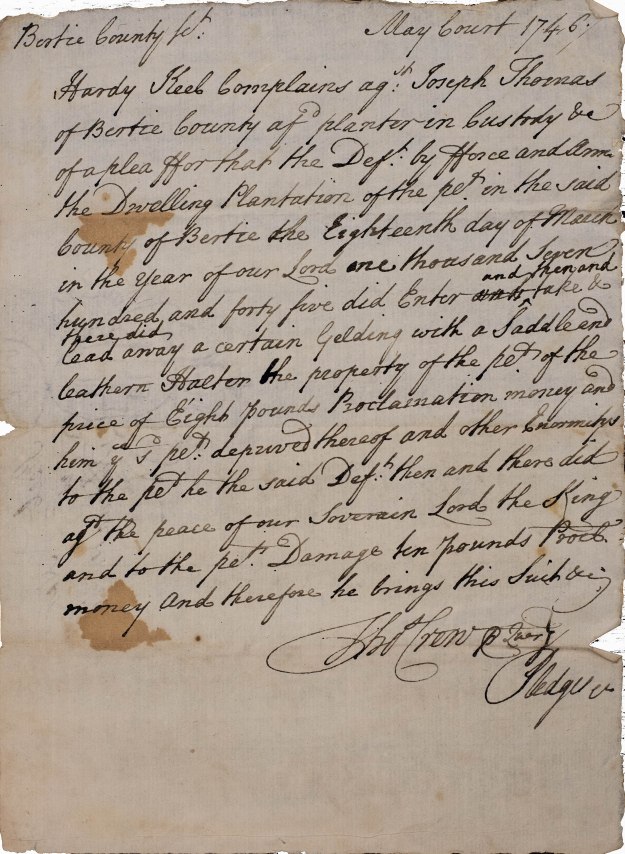 Bertie County sct. May Court 1746
Hardy Keel Complains agst. Joseph Thomas
of Bertie County afd planter in Custody &c
of a plea ffor that the Deft. by fforce and Arms
the Dwelling Plantation of the pet in the said
County of Bertie the Eighteenth day of March
in the Year of our Lord one thousand Seven
hundred and forty five did Enter and then and take &
there did
lead away a certain Gelding with a Saddle and
leathern Halter the property of the pet. of the
price of Eight pounds Proclamation money and
him ye sd pet. deprived thereof and other Enormitys
to the pet he the said Deft. then and there did
agt the peace of our Soverain Lord the King
and to the pet. Damage ten pounds Procl
money And therefore he brings this Suit &c
Thos Crow Quer
Pledges &c